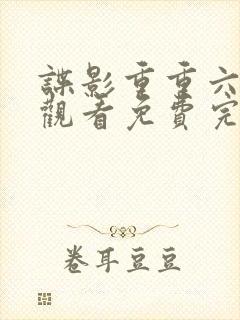 諜影重重六
觀看免費完
卷耳豆豆